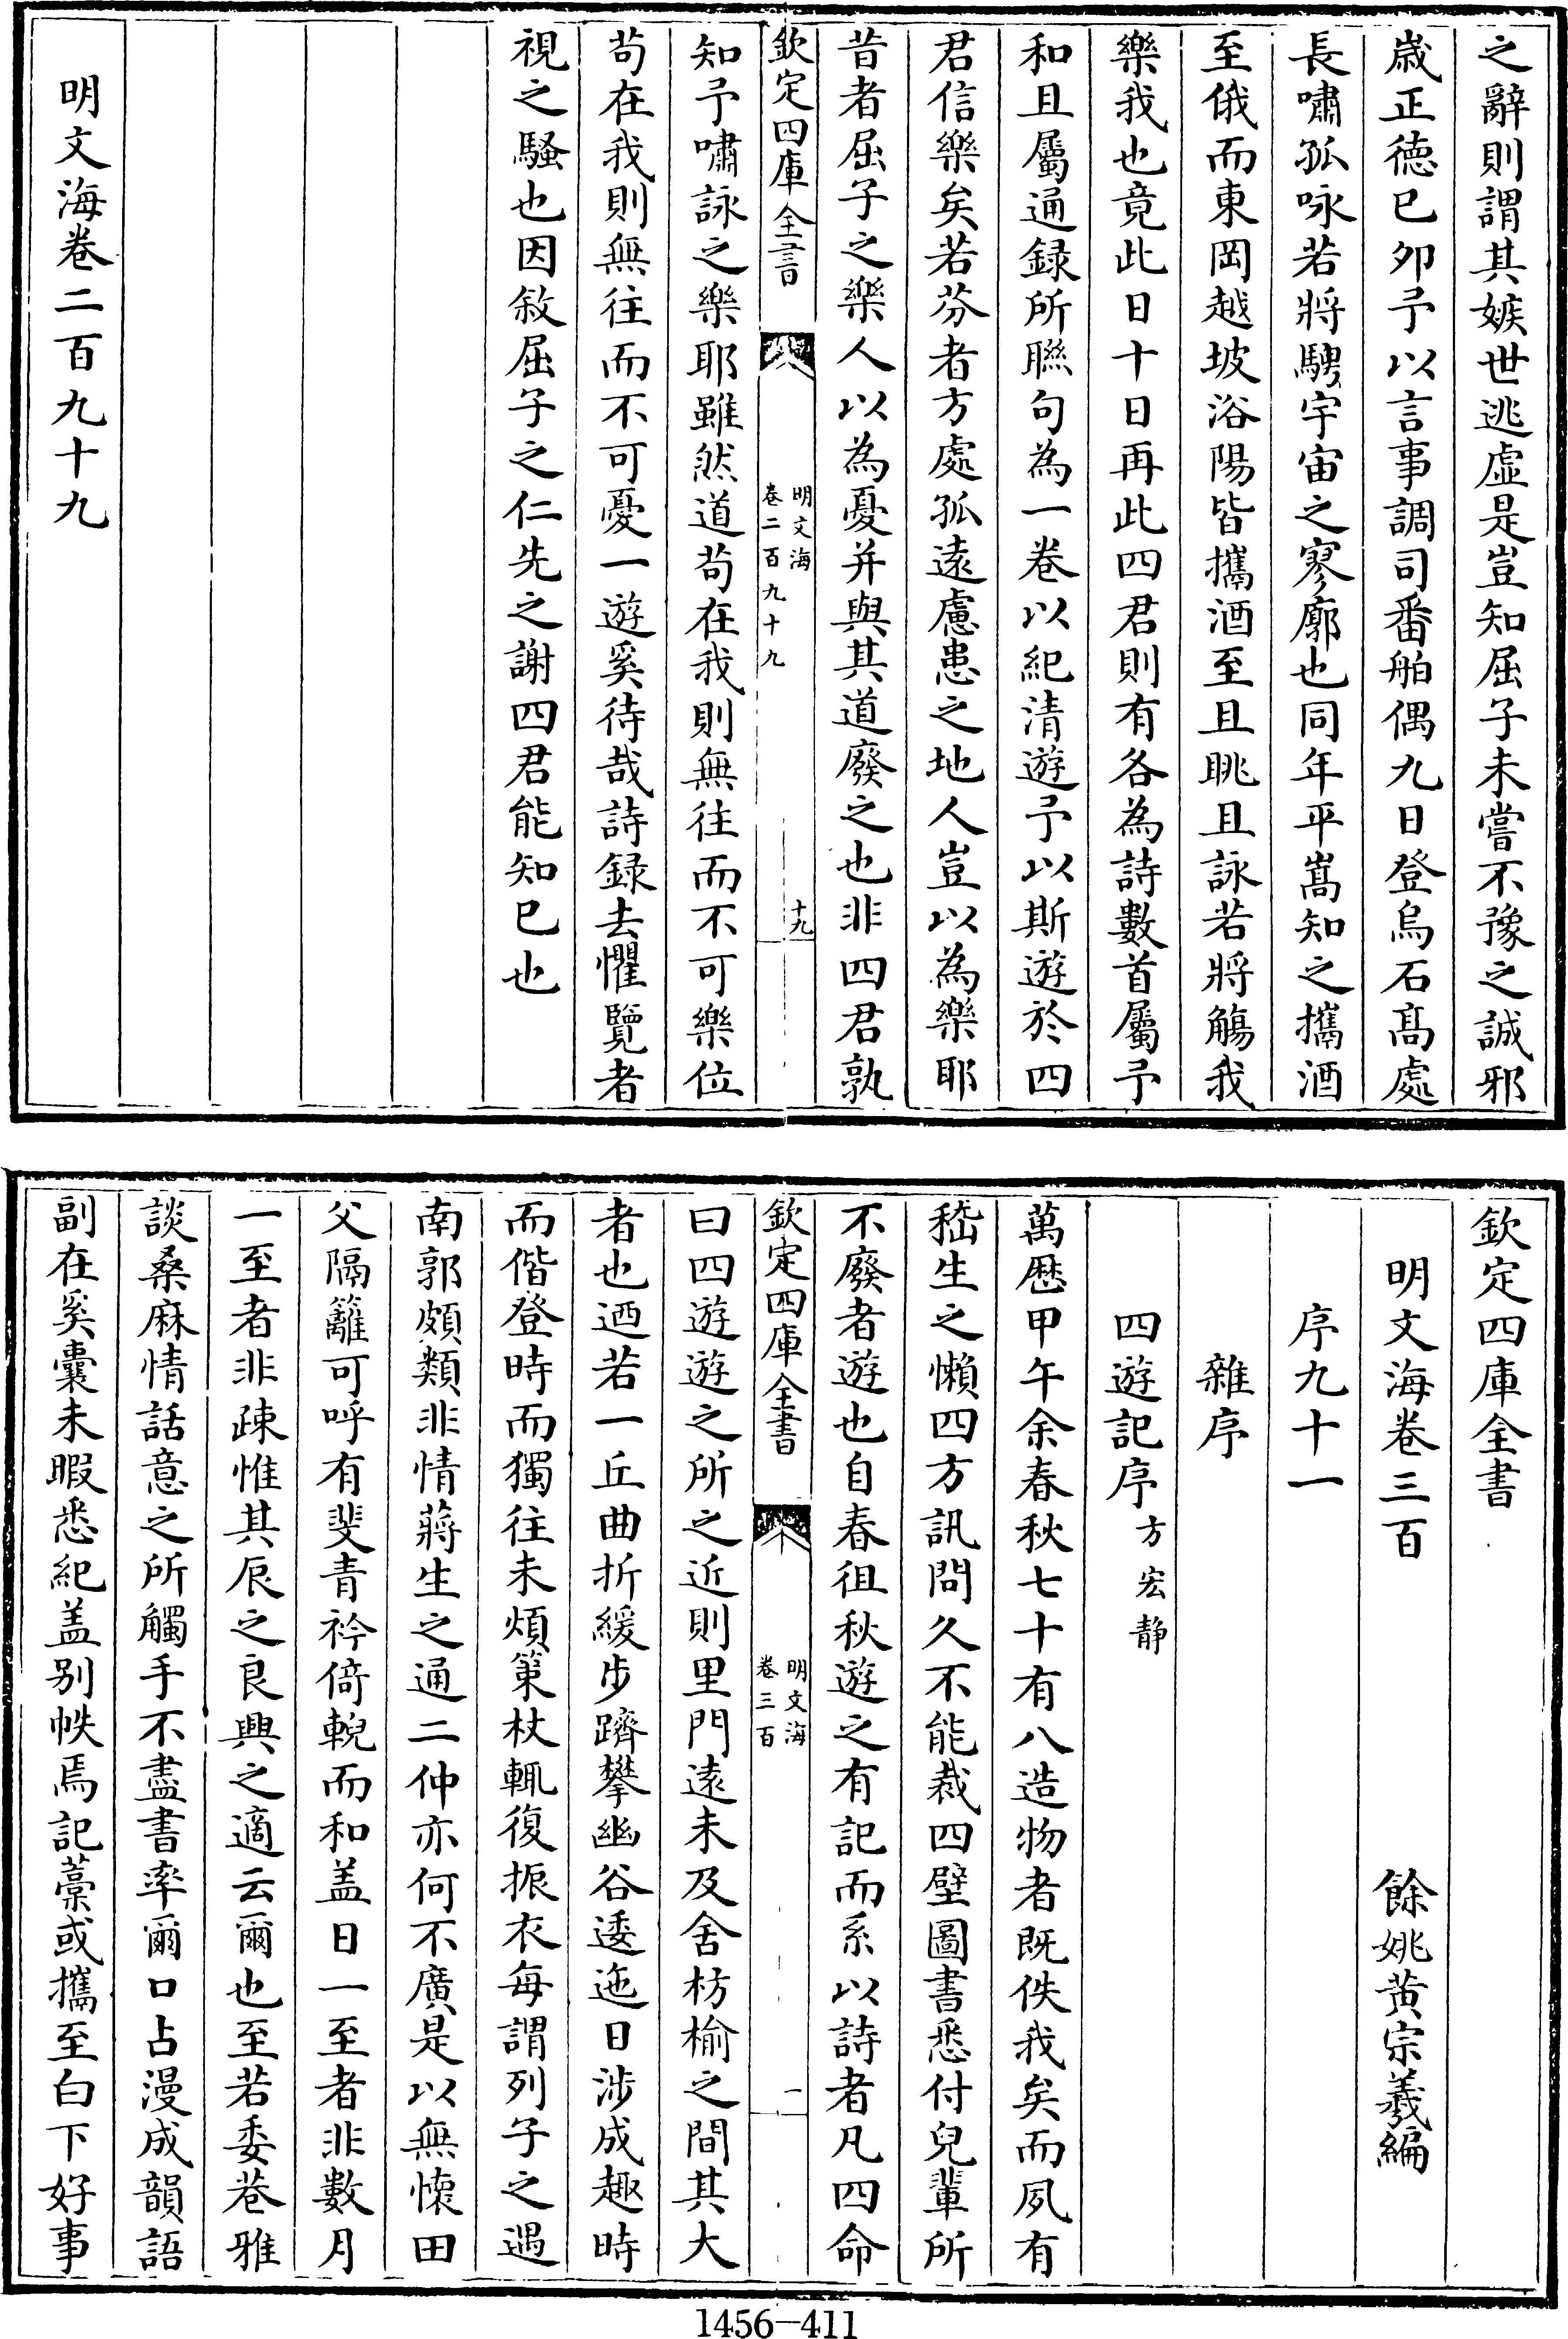 之辭則謂其嫉世逃虛是豈知屈子未嘗不豫之誠邪
歲正德已夘予以言事調司番舶偶九日登烏石髙處
長嘯孤咏若將騁宇宙之寥廓也同年平嵩知之攜酒
至俄而東岡越坡浴陽皆攜酒至且眺且詠若將觴我
樂我也竟此日十日再此四君則有各為詩數首屬予
和且屬通録所聯句為一卷以紀清遊予以斯遊於四
君信樂矣若芬者方處孤逺慮患之地人豈以為樂耶
昔者屈子之樂人以為憂并與其道廢之也非四君孰
欽定四庫全書
明文海
卷二百九十九
十九
知予嘯詠之樂耶雖然道苟在我則無往而不可樂位
苟在我則無往而不可憂一遊奚待哉詩録去懼覽者
視之騷也因敘屈子之仁先之謝四君能知已也
明文海卷二百九十九
欽定四庫全書
明文海卷三百
餘姚黃宗羲編
序九十一
雜序
四遊記序 方宏静
萬厯甲午余春秋七十有八造物者既佚我矣而夙有
嵇生之懶四方訊問久不能裁四壁圖書悉付兒輩所
不廢者遊也自春徂秋遊之有記而系以詩者凡四命
欽定四庫全書
明文海
卷三百
一
曰四遊遊之所之近則里門逺未及舍枋榆之間其大
者也迺若一丘曲折緩步躋攀幽谷逶迤日涉成趣時
而偕登時而獨往未煩策杖輒復振衣每謂列子之遇
南郭頗類非情蔣生之通二仲亦何不廣是以無懷田
父隔籬可呼有斐青衿倚輗而和盖日一至者非數月
一至者非疎惟其辰之良興之適云爾也至若委巷雅
談桑麻情話意之所觸手不盡書率爾口占漫成韻語
副在奚囊未暇悉紀盖别帙焉記藁或攜至白下好事
1456—411